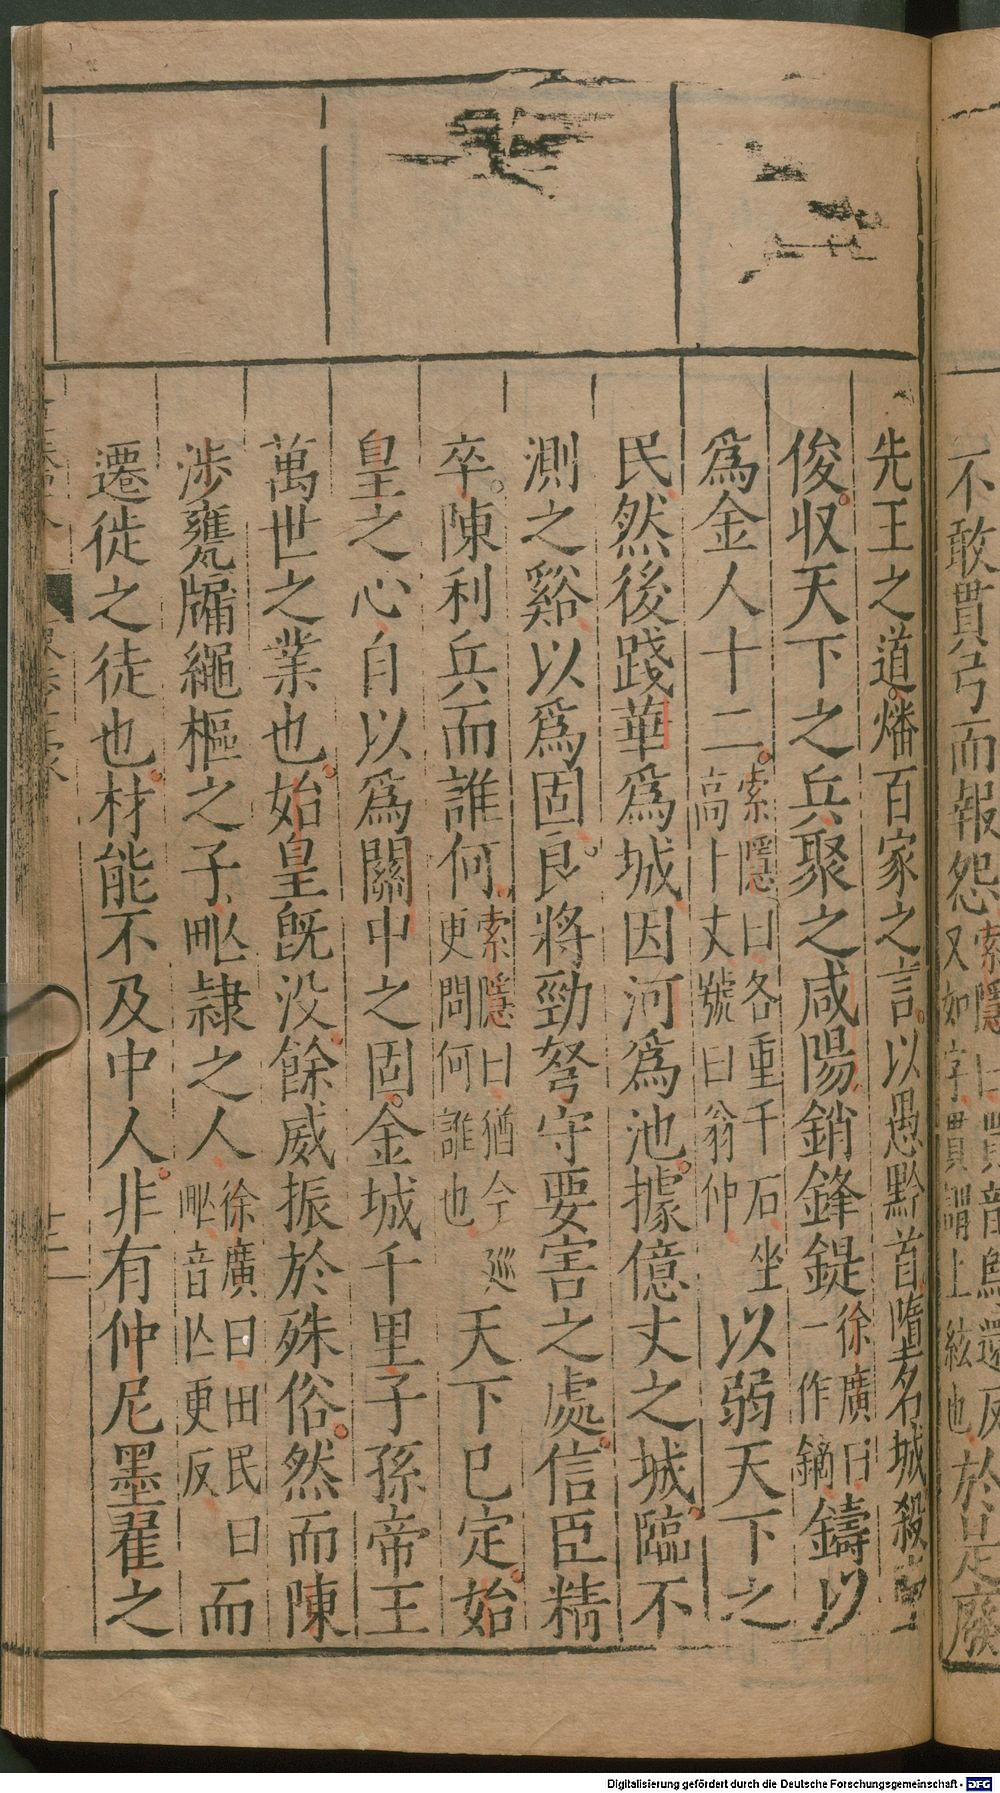 不敢貫弓而報怨索隱曰貫音烏還反又如字貫謂上絃也於是廢
先王之道燔百家之言以愚黔首墮名城殺豪
俊収天下之兵聚之咸陽銷鋒鍉徐廣曰一作鏑鑄以
爲金人十二索隱曰各重千石坐高卜丈號曰翁仲以弱天下之
民然後踐華爲城因河爲池據億丈之城臨不
測之谿以爲固良將勁弩守要害之處信臣精
卒陳利兵而誰何索隱曰猶今巡更問何誰也天下已定始
皇之心自以爲關中之固金城千里子孫帝王
萬世之業也始皇旣没餘威振於殊俗然而陳
涉甕牖繩樞之子甿隷之人徐廣曰田民曰甿音亡更反而
遷徙之徒也材能不及中人非有仲尼墨翟之
Digitalisierung gefördert durch die Deutsche Forschungsgemeinschaft - DFG